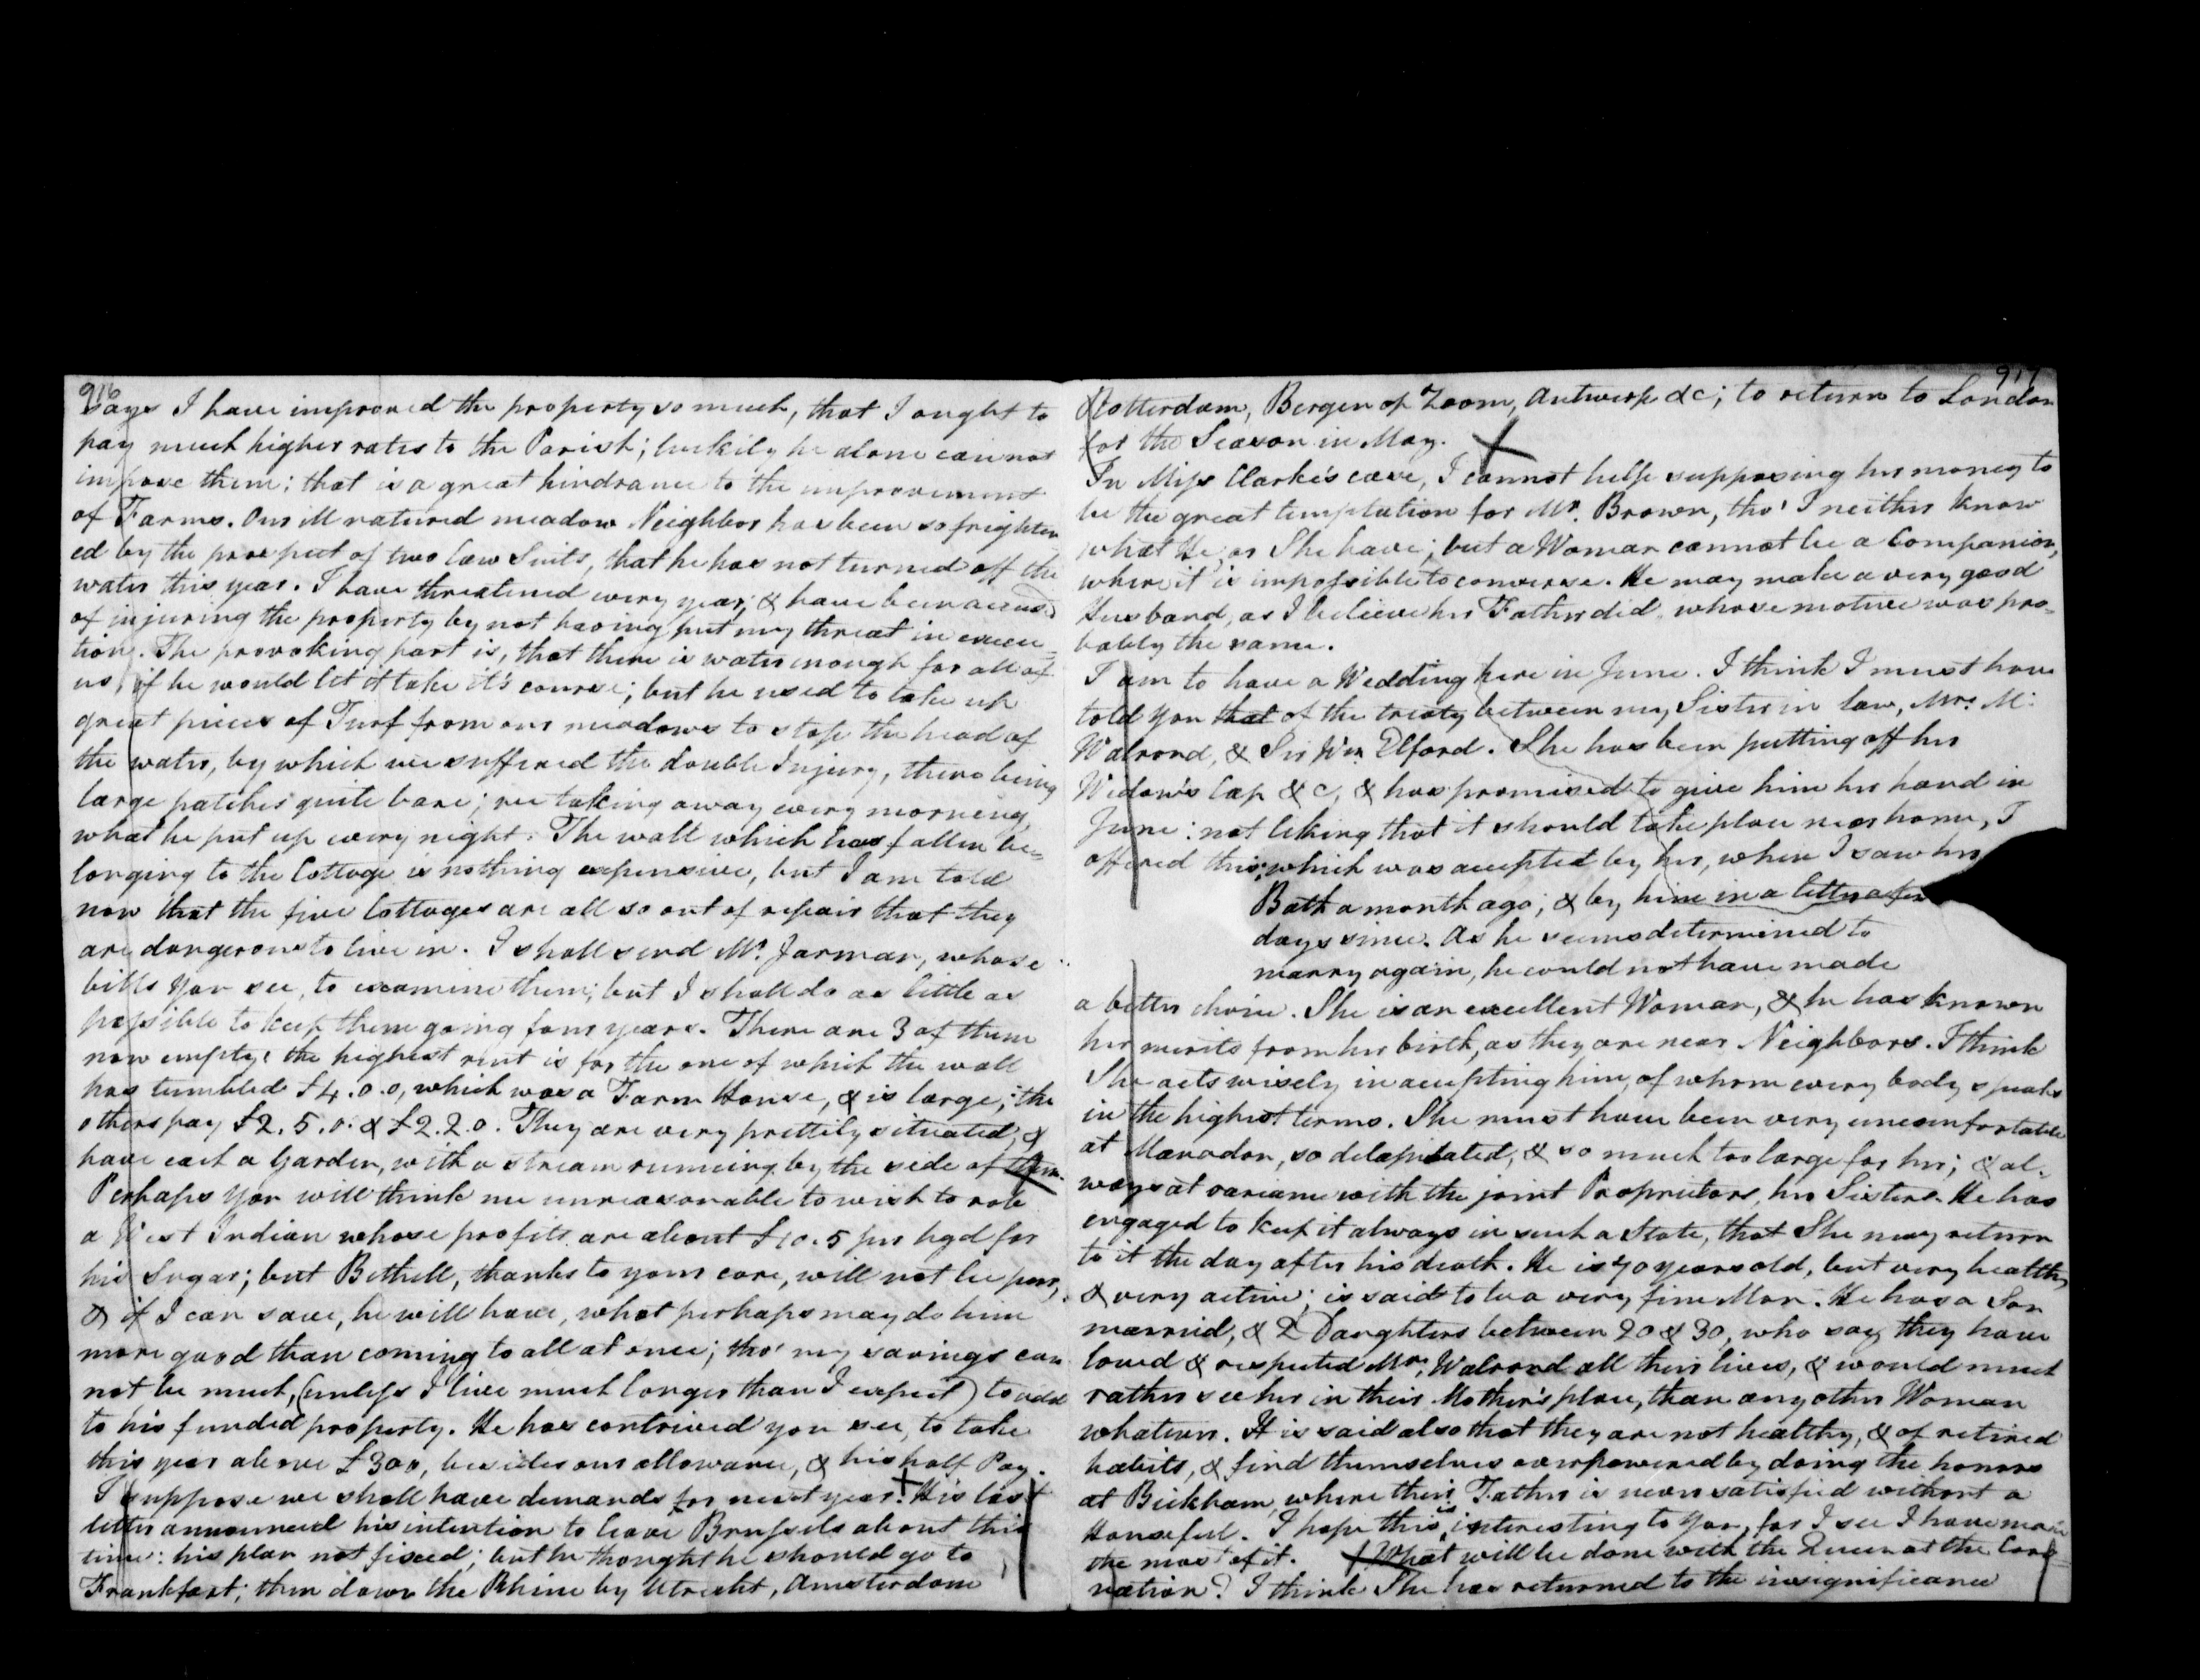 916
says I have improved the property so much, that I ought to
pay much higher rates to the Parish; luckily he alone can not
impose them: that is a great hindrance to the improvement
of Farms. Our ill natured meadow Neighbor has been so frighten
ed by the prospect of two law Suits, that he has not turned off the
water this year. I have threatened every year; & have been accused
of injuring the property by not having put my threat in execu=
tion. The provoking part is, that there is water enough for all of
us, if he would let it take it's course; but he used to take up
great pieces of Turf from our meadows to stop the head of
the water, by which we suffered the double Injury, there being
large patches quite bare; we taking away every morning,
what he put up every night. The wall which has fallen be=
longing to the Cottage is nothing expensive, but I am told
now that the five Cottages are all so out of repair that they
are dangerous to live in. I shall send Mr. Jarman, whose
bills you see, to examine them; but I shall do as little as
possible to keep them going four years. There are 3 of them
now empty: the highest rent is for the one of which the wall
has tumbled £4.0.0, which was a Farm House, & is large; the
others pay £2.5.0. & £2.2.0. They are very prettily situated, &
have each a Garden, with a stream running by the side of them.
Perhaps you will think me unreasonable to wish to rob
a West Indian whose profits are about £10.5 per hgd for
his Sugar; but Bethell, thanks to your care, will not be poor,
& if I can save, he will have, what perhaps may do him
more good than coming to all at once; tho' my savings can
not be much, (unless I live much longer than I expect) to add
to his funded property. He has contrived you see, to take
this year above £300, besides our allowance, & his half Pay.
I suppose we shall have demands for next year. His last
letter announced his intention to leave Brussels about this
time: his plan not fixed; but he thought he should go to
Frankfort; then down the Rhine by Utrecht, Amsterdam
917
Rotterdam, Bergen op Zoom, Antwerp &c; to return to London
for the Season in May.
In Miss Clarke's case, I cannot help supposing her money to
be the great temptation for Mr. Brown, tho' I neither know
what He, or She have; but a Woman cannot be a Companion,
where it is impossible to converse. He may make a very good
Husband, as I believe her Father did, whose motive was pro=
bably the same.
I am to have a Wedding here in June. I think I must have
told you that of the treaty between my Sister in law, Mrs. M:
Walrond, & Sir Wm. Elford. She has been putting off her
Widow's Cap &c, & has promised to give him her hand in
June: not liking that it should take place near home, I
offered this; which was accepted by her, when I saw her
Bath a month ago; & by him in a letter a few
days since. As he seems determined to
marry again, he could not have made
a better choice. She is an excellent Woman, & he has known
her merits from her birth, as they are near Neighbors. I think
She acts wisely in accepting him, of whom every body speaks
in the highest terms. She must have been very uncomfortable
at Manadon, so delapidated, & so much too large for her; & al-
ways at variance with the joint Proprietors, her Sisters. He has
engaged to keep it always in such a State, that She may return
to it the day after his death. He is 70 years old, but very healthy,
& very active; is said to be a very fine Man. He has a Son
married, & 2 Daughters between 20 & 30, who say they have
loved & respected Mrs. Walrond all their lives, & would much
rather see her in their Mother's place, than any other Woman
whatever. It is said also that they are not healthy, & of retired
habits, & find themselves overpowered by doing the honors
at Bickham, where their Father is never satisfied without a
Houseful. I hope this is interesting to you, for I see I have made
the most of it. What will be done with the Queen at the Coro
nation? I think She has returned to the insignificance